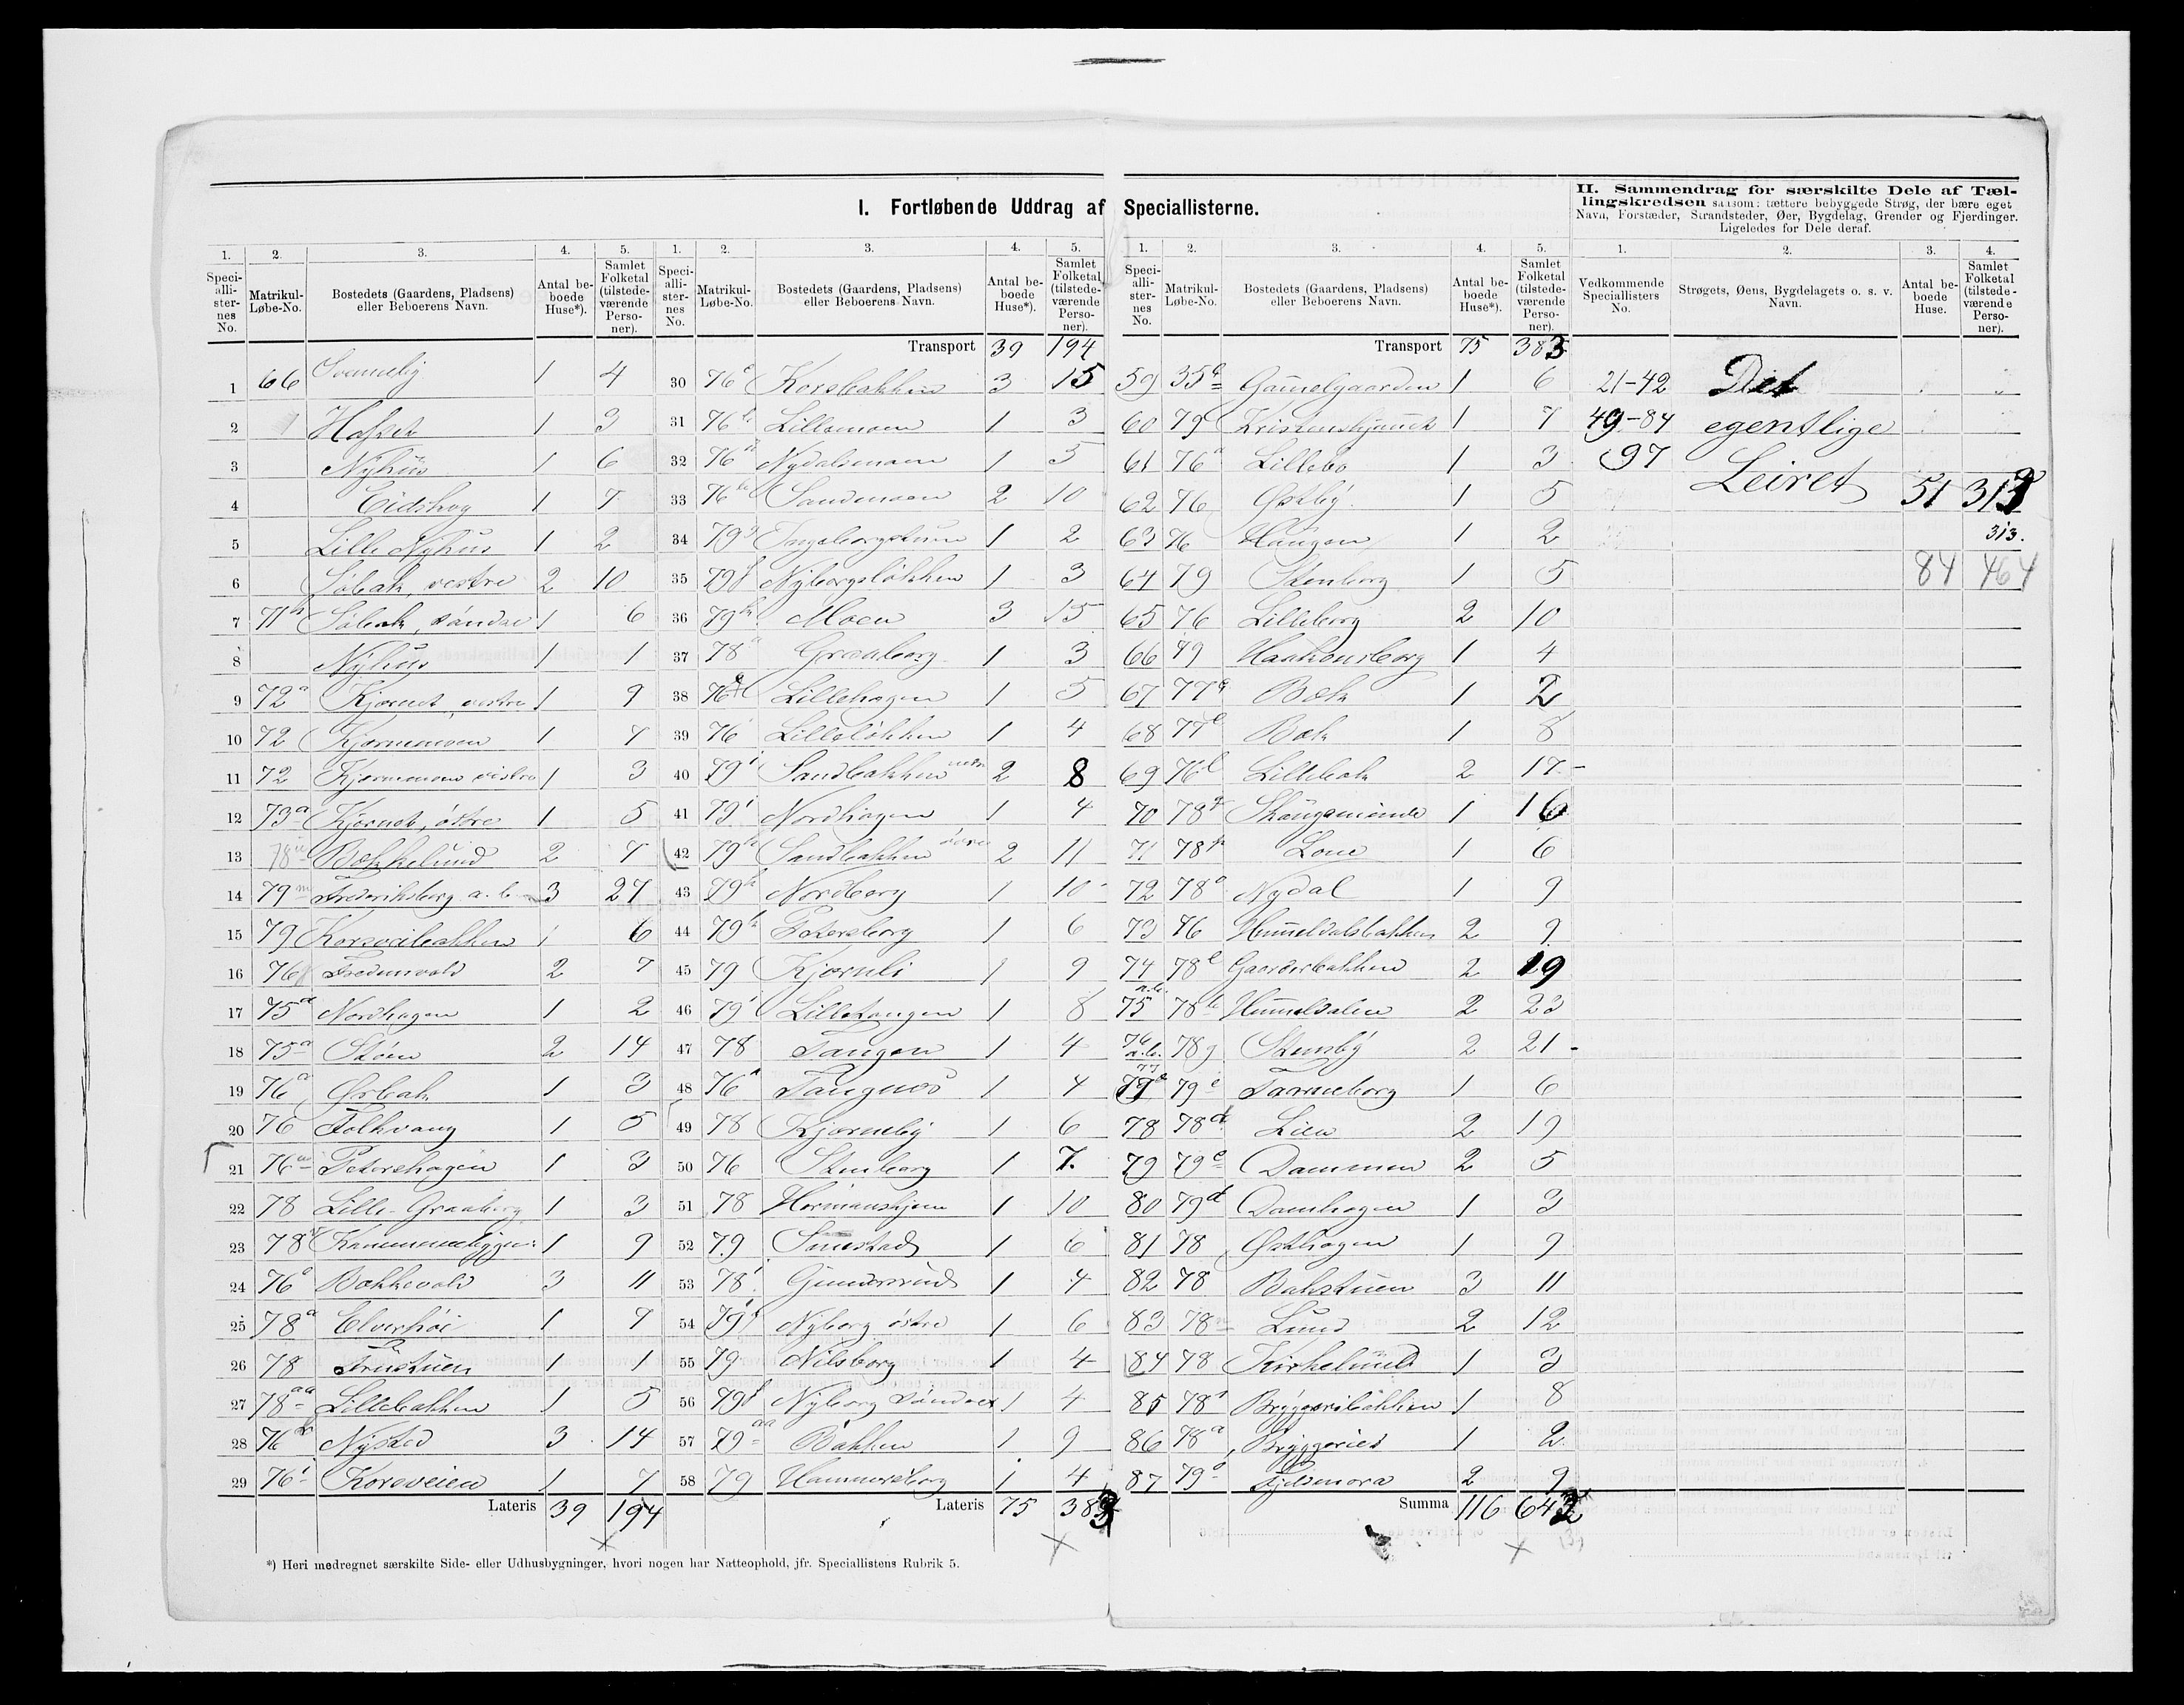 I. Fortløbende Uddrag af Speciallisterne.
II. Sammendrag for særskilte Dele af Tæl-
lingskredsen saasom: tættere bebyggede Strøg, der bære eget
Navn, Forstæder, Strandsteder, Øer, Bygdelag, Grender og Fjerdinger.
Ligeledes for Dele deraf.
1. 2. 3. 4. 5.
Speciallisternes No. Matrikul-Løbe-No. Bostedets (Gaardens, Pladsens) eller Beboerens Navn. Antal beboede Huse*). Samlet Folketal (tilstedeværende Personer).
1 66 1 4
2 Hafset 1 3
3 Nyhus 1 6
4 Eidskog 1 7
5 Lille Nyhus 1 2
6 vestre 2 10
7 71 1 6
8 Nyhus 1 1
9 72a Kjernet, vestre 1 9
10 72 Kjernemoen 1 7
11 72 Kjernemoen vestre 1 3
12 73a Kjernet, østre 1 5
13 78 Bækkelund 2 7
14 79m Frederiksborg a. b. 3 27
15 79 Korsveibakken 1 6
16 76 Fredensvold 2 7
17 75a Nordhagen 1 2
18 75a Støen 2 14
19 76a Ørbæk 1 3
20 76 Folkvang 1 5
21 76 Petershagen 1 3
22 78 Lille-Graaberg 1 3
23 78 1 9
24 76 Bækkevold 3 11
25 78a Elverhøi 1 7
26 78 1 1
27 78aa Lillebakken 1 5
28 76 Nysted 3 14
29 76i Korsveien 1 7
Lateris 39 194
1. 2. 3. 4. 5.
Speciallisternes No. Matrikul-Løbe-No. Bostedets (Gaardens, Pladsens) eller Beboerens Navn. Antal beboede Huse*). Samlet Folketal (tilstedeværende Personer).
Transport 39 194
30 76 Korsbakken 3 15
31 76 Lillemoen 1 3
32 76 Nydalsmoen 1 5
33 76 Sandmoen 2 10
34 79 Ingeborgstuen 1 2
35 79f Nyborgsløkken 1 3
36 79 Moen 3 15
37 78 Graaberg 1 3
38 76 Lillehagen 1 5
39 76 Lilleløkken 1 4
40 79i Sandbakken 2 8
41 79i Nordhagen 1 4
42 79 Sandbakken 2 11
43 79 Nordberg 1 10
44 79 Petersborg 1 6
45 79 Kjernli 1 9
46 79i Lilletangen 1 8
47 78 Tangen 1 4
48 76 Tangnes 1 4
49 78 Kjerneby 1 6
50 76 Stenberg 1 7.
51 78 Hermanshjem 1 10
52 79 1 6
53 78 Gundersrud 1 4
54 79 Nyborg østre 1 6
55 79 Nilsborg 1 4
56 79f Nyborg søndre 1 4
57 79aa Bakken 1 9
58 79 Hammersborg 1 4
Lateris 75 383
1. 2. 3. 4. 5.
Speciallisternes No. Matrikul-Løbe-No. Bostedets (Gaardens, Pladsens) eller Beboerens Navn. Antal beboede Huse*). Samlet Folketal (tilstedeværende Personer).
Transport 75 383
59 35 Gammelgaarden 1 6
60 79 1 7
61 76 Lillebo 1 3
62 76 Østby 1 5
63 76 Haugen 1 2
64 79 Stenborg 1 5
65 76 Lilleborg 2 10
66 79 Haakonsborg 1 4
67 77 Bæk 1 2
68 77 Bæk 1 8
69 76 Lillebæk 2 17
70 78 1 16
71 78 Lone 1 6
72 78 Nydal 1 9
73 76 Hummeldalsbakken 2 9
74 78 Gaarderbakken 2 19
75 a.b. 78 Hummeldalen 2 23
76 a.b. 78g Stensby 2 21
77 79e Tanneborg 1 6
78 78d Lien 2 19
79 79e Dammen 2 5
80 79d Damhagen 1 3
81 78 Østhagen 1 9
82 78 Bakstuen 3 11
83 78 Lund 2 12
84 78 Kirkelund 1 3
85 78 Bryggeribakken 1 8
86 78a Bryggeriet 1 2
87 79 2 9
Summa 116 643
1. 2. 3. 4.
Vedkommende Speciallisters No. Strøgets, Øens, Bygdelagets o. s. v. Navn. Antal beboede Huse. Samlet Folketal (tilstedeværende Personer).
21-42 Det
49-84 egentlige
97 Leiret 51 313
313.
84 464
*) Heri medregnet særskilte Side- eller Udhusbygninger, hvori nogen har Natteophold, jfr. Speciallistens Rubrik 5.